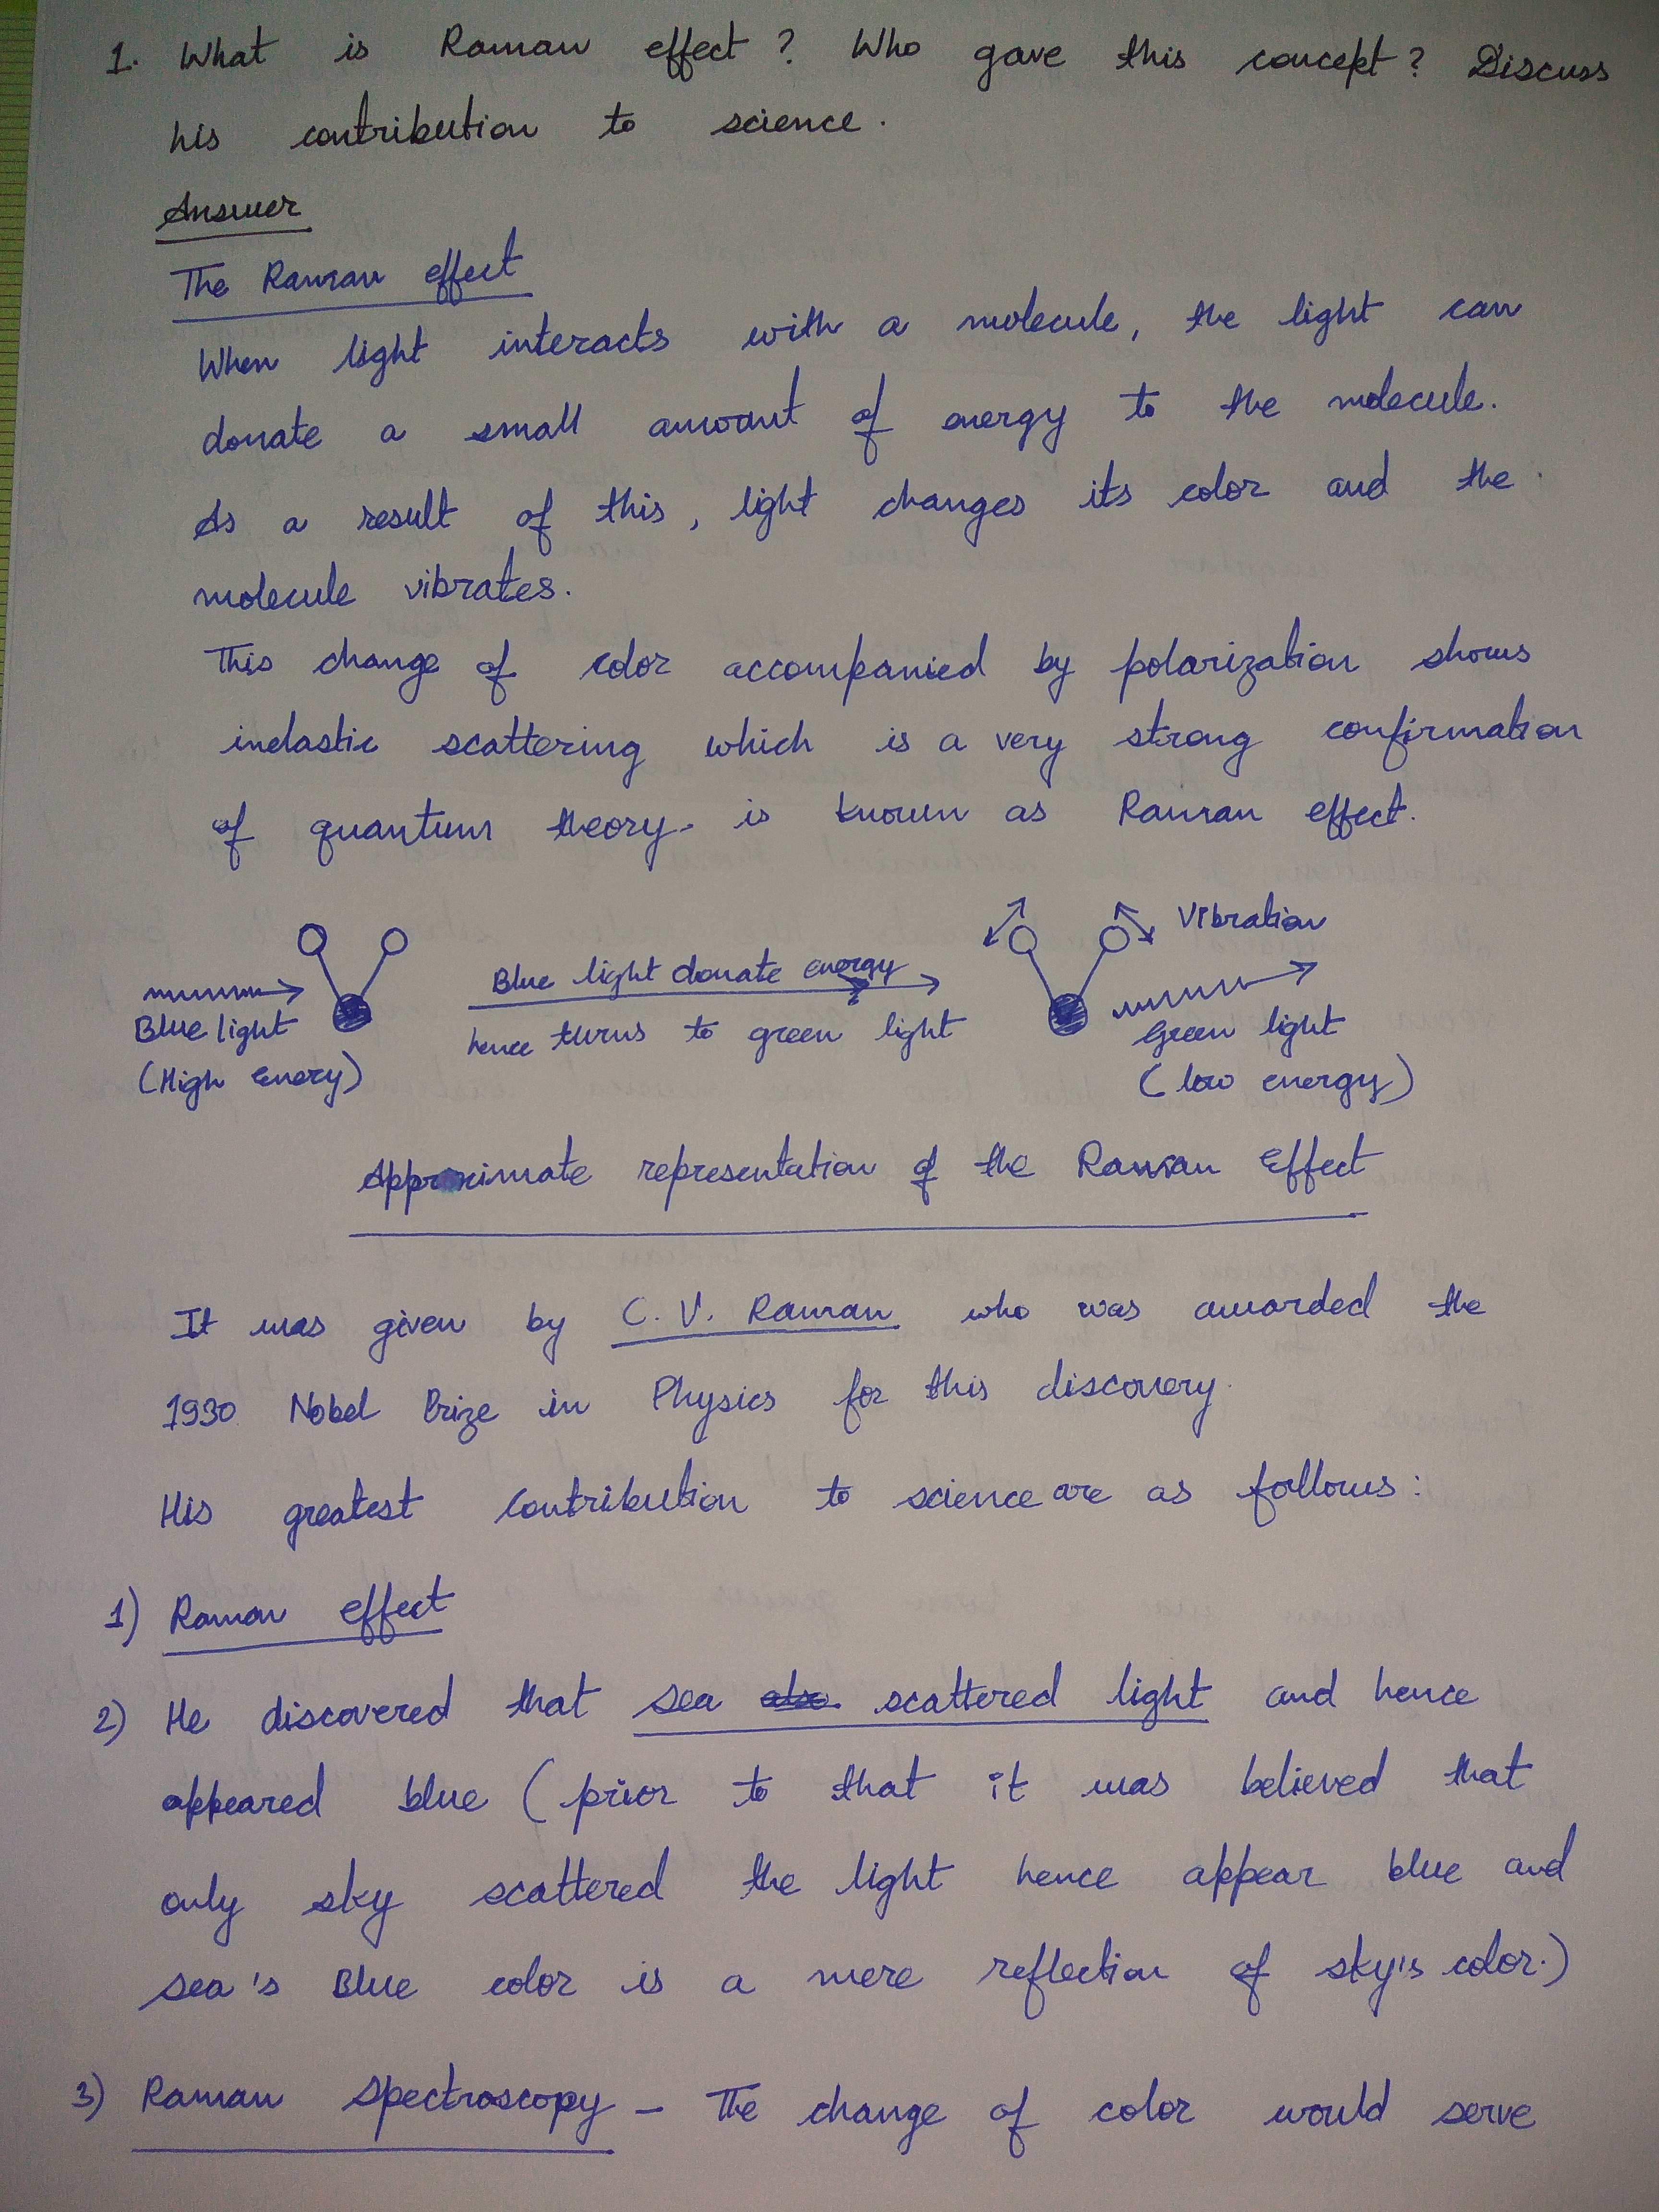 1. What is Raman effect? Who gave this concept? Discuss
his contribution to science.
Answer
The Raman effect
When light interacts with a molecule, the light can
donate a small amount of energy to the molecule.
As a result of this, light changes its color and the
molecule vibrates.
This change of color accompanied by polarization shows
inelastic scattering which is a very strong confirmation
of quantum theory. is known as Raman effect.
Vibration
Blue light donate energy
Blue light
hence turns to green light
Green light
(High Enery)
(low energy)
Approximate representation of the Raman Effect
It was given by C. V. Raman who was awarded the
1930 Nobel Prize in Physics for this discovery.
His greatest contribution to science are as follows:
1) Raman effect
2) He discovered that sea also scattered light and hence
appeared blue (prior to that it was believed that
only sky scattered the light hence appear blue and
sea's Blue color is a mere reflection of sky's color.)
3) Raman Spectroscopy - The change of color would serve